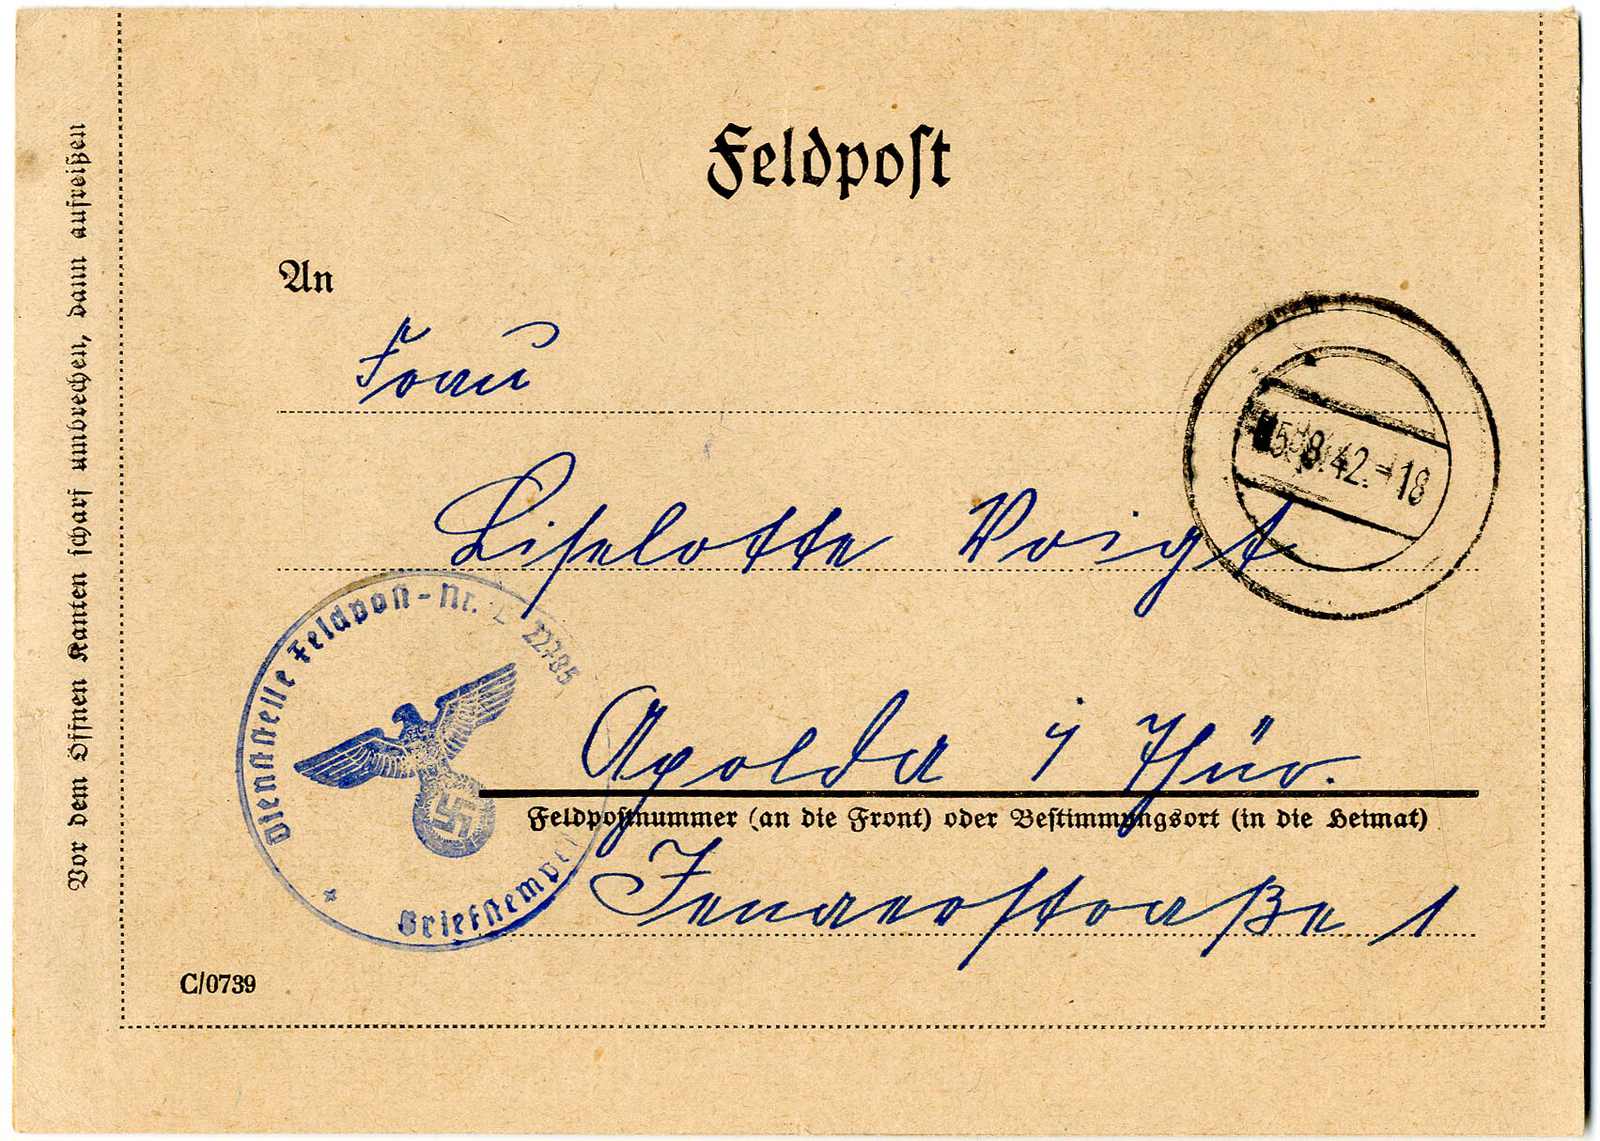 Feldpost
An
Frau
Liselotte Voigt
Apolda i Thür.
Feldpostnummer (an die Front) oder Bestimmungsort (in die Heimat)
Jenaerstraße 1
C/0739
Vor dem Öffnen Kanten scharf umbrechen, dann aufreißen
5.8.42.-18
Dienststelle Feldpost-Nr. L 22785
Briefstempel